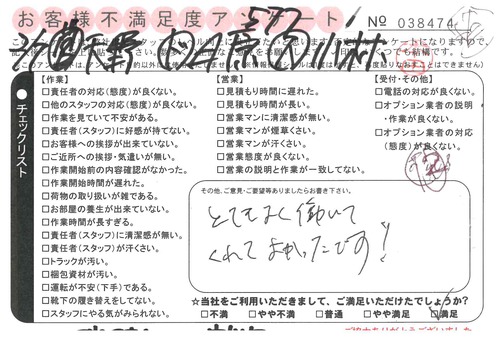 お客様不満足度アンケート
No 038474
【作業】
□責任者の対応(態度)が良くない。
□他のスタッフの対応(態度)が良くない。
□作業を見ていて不安がある。
□責任者(スタッフ)に好感が持てない。
□お客様への挨拶が出来ていない。
□ご近所への挨拶・気遣いが無い。
□作業開始前の内容確認がなかった。
□作業開始時間が遅れた。
□荷物の取り扱いが雑である。
□お部屋の養生が出来ていない。
□作業時間が長すぎる。
□責任者(スタッフ)に清潔感が無い。
□責任者(スタッフ)が汗くさい。
□トラックが汚い。
□梱包資材が汚い。
□運転が不安(下手)である。
□靴下の履き替えをしてない。
□スタッフにやる気がみられない。
【営業】
□見積もり時間に遅れた。
□見積もり時間が長い。
□営業マンに清潔感が無い。
□営業マンが煙草くさい。
□営業マンが汗くさい。
□営業態度が良くない。
□営業の説明と作業が一致してない。
【受付・その他】
□電話の対応が良くない。
□オプション業者の説明
・作業が良くない。
□オプション業者の対応
(態度)が良くない。
チェックリスト
その他、ご意見・ご要望等ありましたらお書き下さい。
とてもよく働いて
くれてよかったです!
☆当社をご利用いただきまして、ご満足いただけたでしょうか?
□不満 □やや不満 □普通 □やや満足 □満足